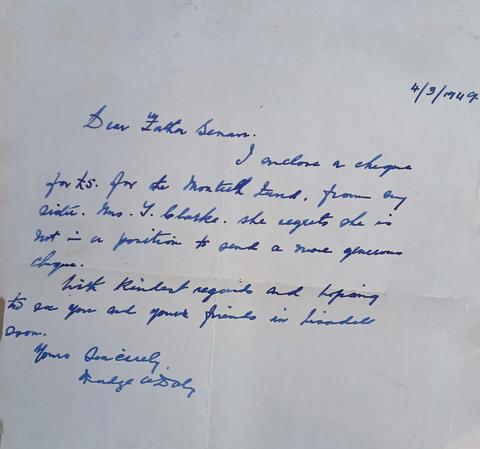 4/3/1949.
Dear Father Senan.
I enclose a cheque
for £5. for the Monteith Fund. from my
sister. Mrs. T. Clarke. she regrets she is
not in a position to send a more generous
cheque.
With kindest regards and hoping
to see you and your friends in
soon.
Yours Sincerely.
Madge Daly